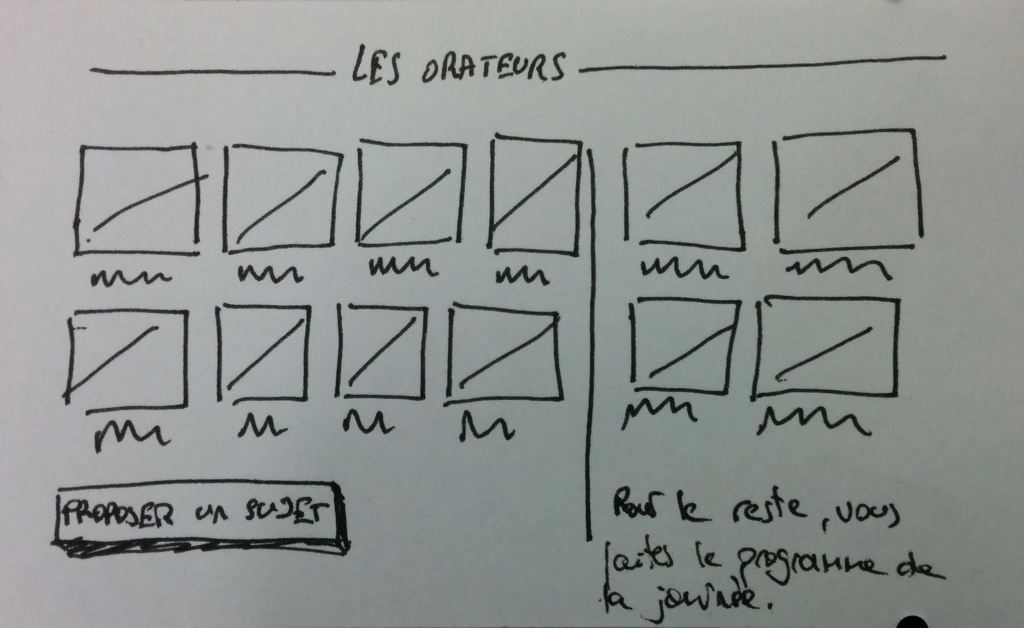 LES ORATEURS
PROPOSER UN SUJET
Pour le reste, vous
faites le programme de
la journée.